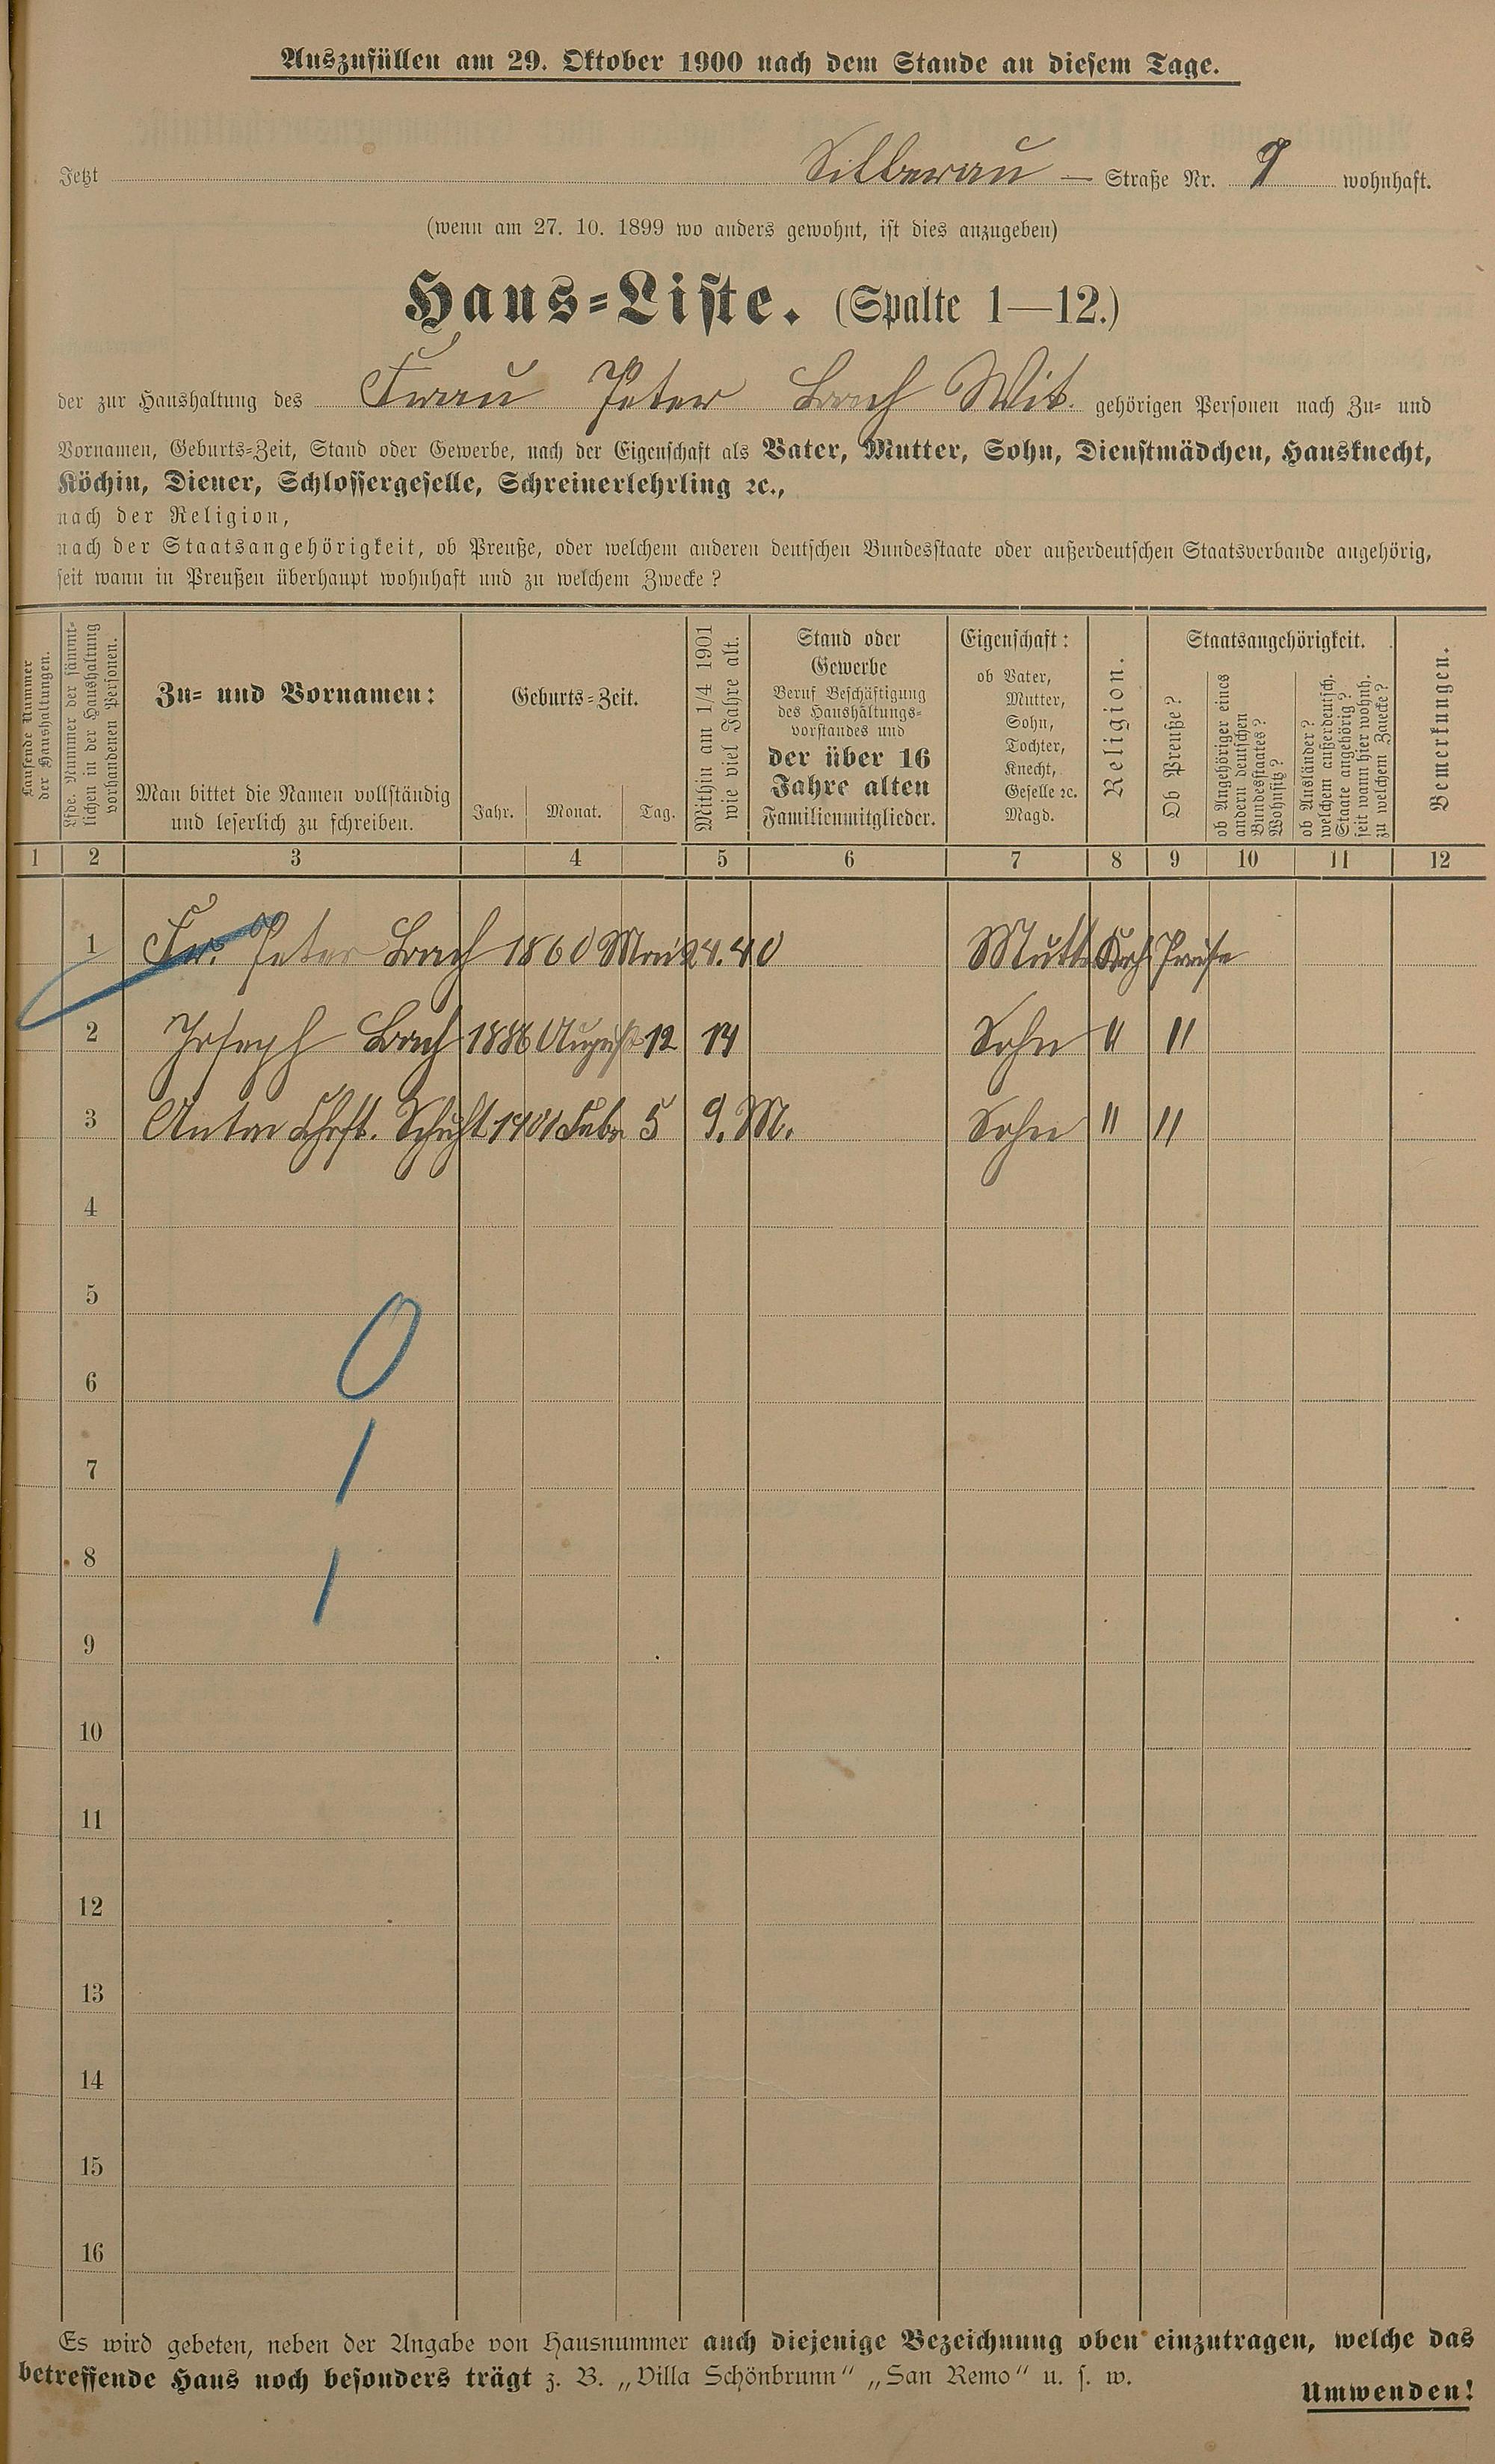 Auszufüllen am 29. Oktober 1900 nach dem Stande an diesem Tage.
Jetzt Silberau — Straße Nr. 9 wohnhaft.
(wenn am 27. 10. 1899 wo anders gewohnt, ist dies anzugeben)
Haus-Liste. (Spalte 1—12.)
der zur Haushaltung des Frau Peter Bach Wit. gehörigen Personen nach Zu- und
Vornamen, Geburts-Zeit, Stand oder Gewerbe, nach der Eigenschaft als Vater, Mutter, Sohn, Dienstmädchen, Hausknecht,
Köchin, Diener, Schlossergeselle, Schreinerlehrling ꝛc.,
nach der Religion,
nach der Staatsangehörigkeit, ob Preuße, oder welchem anderen deutschen Bundesstaate oder außerdeutschen Staatsverbande angehörig,
seit wann in Preußen überhaupt wohnhaft und zu welchem Zwecke?
Laufende Nummer
der Haushaltungen.
Lfde. Nummer der sämmt-
lichen in der Haushaltung
vorhandenen Personen.
Zu- und Vornamen:
Man bittet die Namen vollständig
und leserlich zu schreiben.
Geburts-Zeit.
Jahr. Monat. Tag.
Mithin am 1/4 1901
wie viel Jahre alt.
Stand oder
Gewerbe
Beruf Beschäftigung
des Haushaltungs-
vorstandes und
der über 16
Jahre alten
Familienmitglieder.
Eigenschaft:
ob Vater,
Mutter,
Sohn,
Tochter,
Knecht,
Geselle ꝛc.
Magd.
Religion.
Staatsangehörigkeit.
Ob Preuße?
ob Angehöriger eines
andern deutschen
Bundesstaates?
Wohnsitz?
ob Ausländer?
welchem außerdeutsch.
Staate angehörig?
seit wann hier wohnh.
zu welchem Zwecke?
Bemerkungen.
1 2 3 4 5 6 7 8 9 10 11 12
1 Fr. Peter Bach 1860 Mai 24. 40 Mutt. Kath Preuße
2 Joseph Bach 1886 August 12 14 Sohn " "
3 Anton 5 9. M. Sohn " "
4
5
0
6
7 1
8 1
9
10
11
12
13
14
15
16
Es wird gebeten, neben der Angabe von Hausnummer auch diejenige Bezeichnung oben einzutragen, welche das
betreffende Haus noch besonders trägt z. B. „Villa Schönbrunn" „San Remo" u. s. w.
Umwenden!